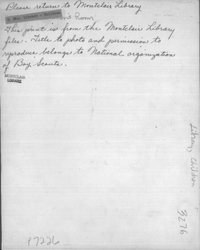 Please return to Montclair Library
Room
This print is from the Montclair Library
files. Title to photo and permission to
reproduce belongs to National organization
of Boy Scouts.
MONTCLAIR
LIBRARY
Library Children
3276
17226